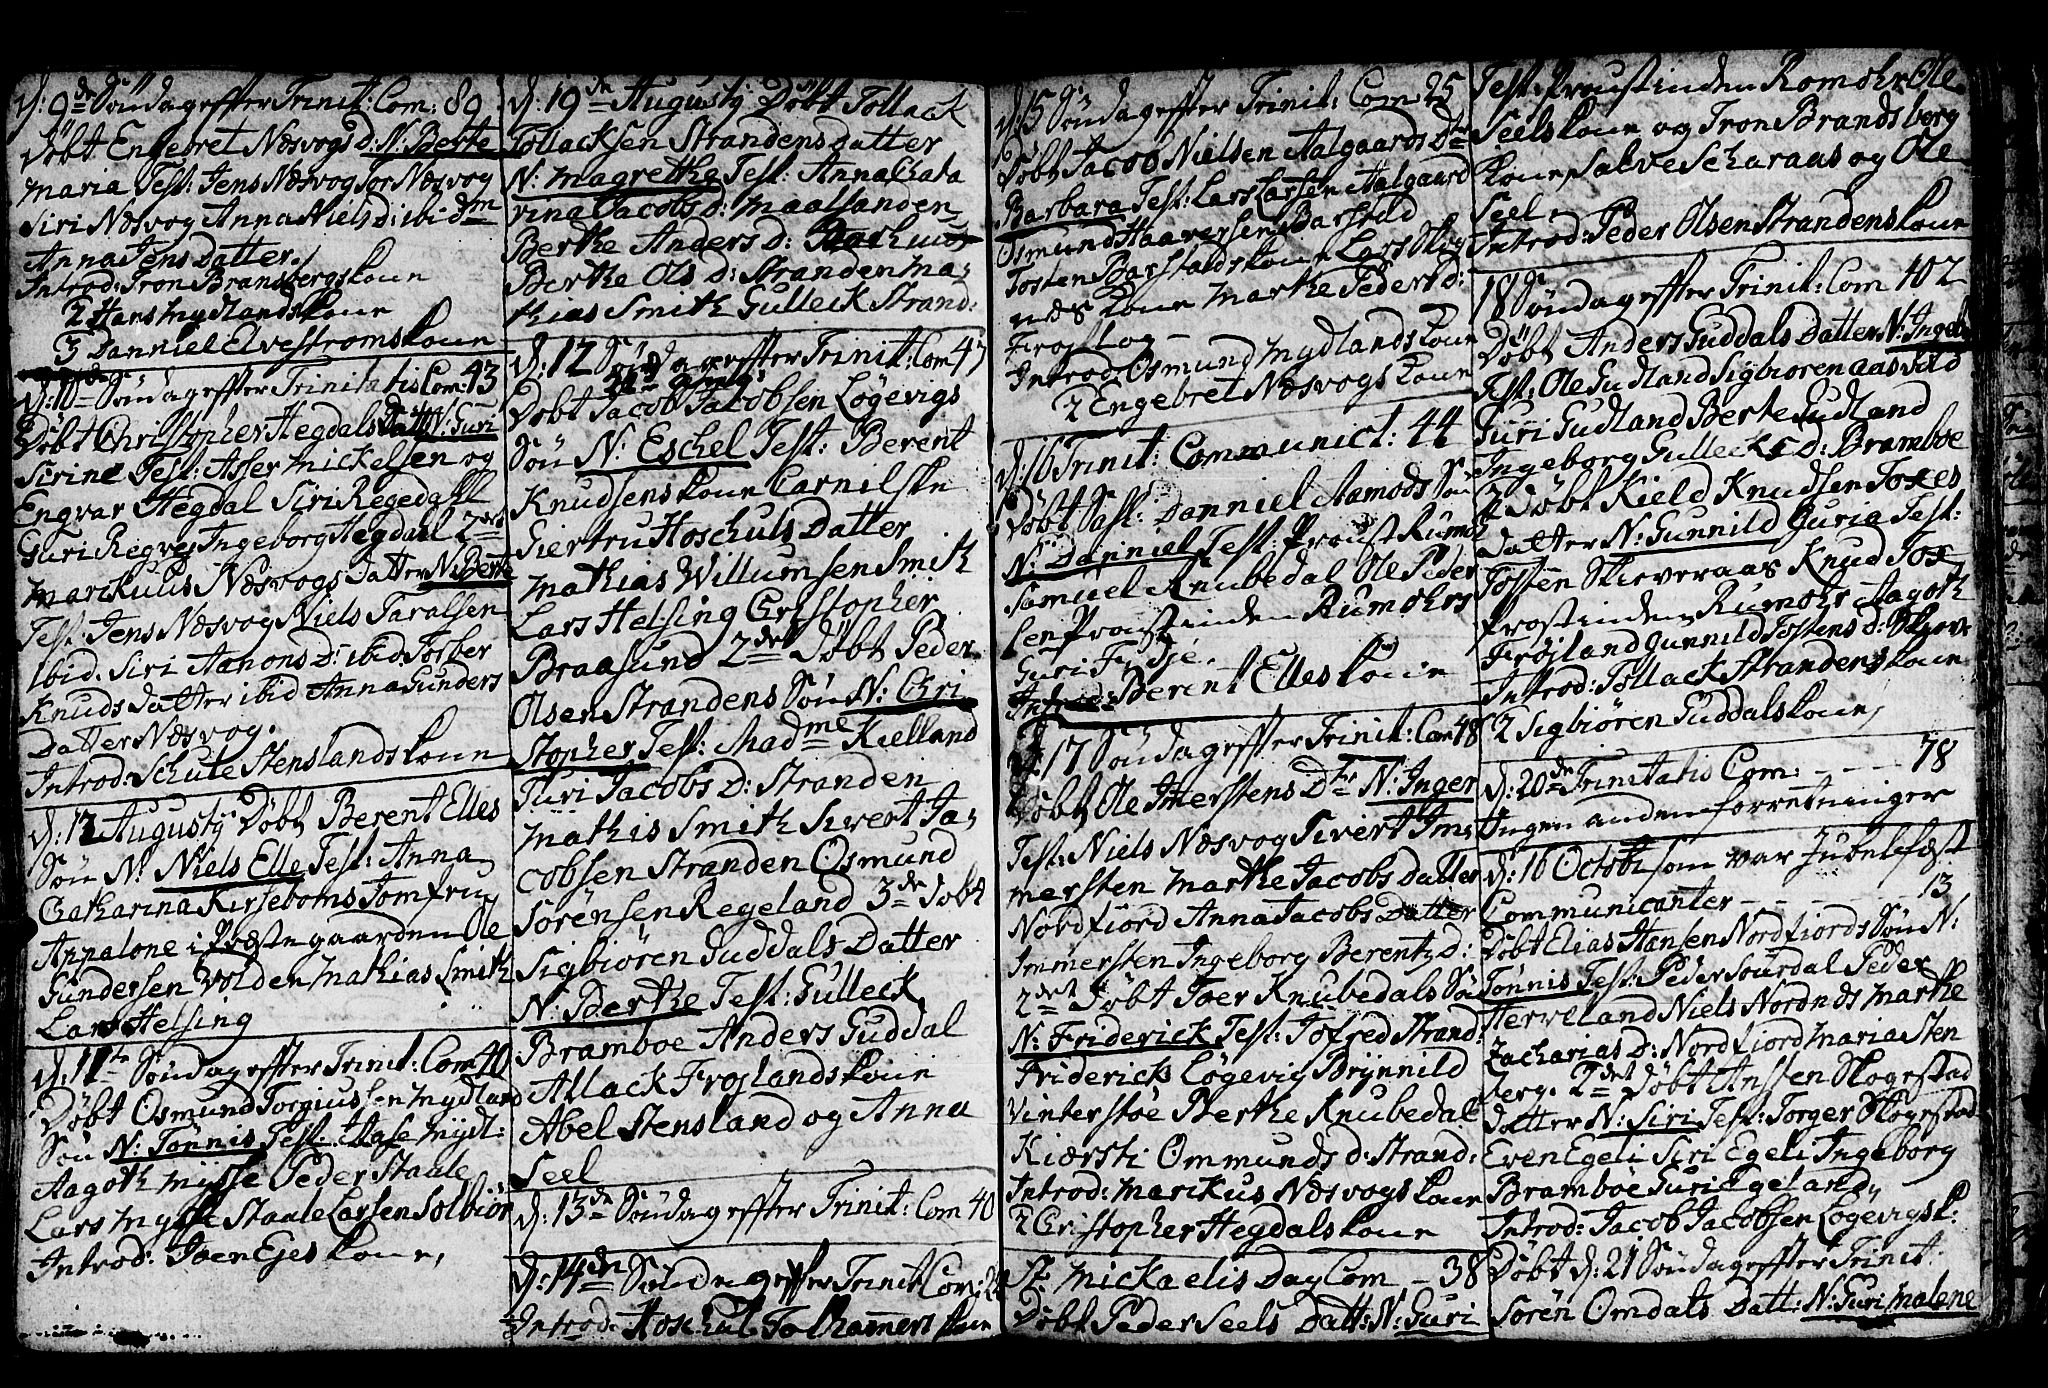 d: 9de Söndag effter Trinit: Com: 89
Döbt Engebret Næsvogs d: N: Berte
Maria Test: Jens Næsvog Tor Næsvog
Siri Næsvog Anna Niels d: ibidm
Anna Jens Datter.
Introd: Tron Brandsbergs kone
2 Hans Mydlands kone
3 Danniel Elvestroms kone
d: 10de Söndag effter Trinitatis Com: 43
Döbt Christopher Hegdals Datt: N: Guri
Sirine Test: Asser Mickelsen og
Engvar Hegdal Siri Regedahl
Guri Ingeborg Hegdahl 2det
Marckulis Næsvogs Datter N: Berte
Test: Jens Næsvog Niels Taralsen
Ibid. Siri Aanons D: ibid. Torber
Knuds datter ibid Anna Gunders
Datter Næsvog.
Introd: Schule Stenslands kone
d: 12 Augustij Döbt Berent Elles
Sön N: Niels Elle Test: Anna
Chatharina Kirseboms Jomfru
Appalone i Præstegaarden Ole
Gundersen Volden Mathias Smith
Lars Helsing
d: 11te Söndag effter Trinit: Com 40
Döbt Osmund Torgiussen Mydland
Sön N: Tönnis Test: Aase Mydl:
Aagoth Mysse Peder Staale
Lars Mysse Staale Larsen Solbiör
Introd: Joen Ejes kone,
d: 19de Augustij Döbt Tollack
Tollacksen Strandens datter
N: Magrethe Test: Anna Chata
rina Jacobs d: Maalsanden
Berthe Anders d:
Berthe Ols d: Stranden Ma,
thias Smith Gulleck Strand:
d: 12 Söndag effter Trinit: Com 47
Döbt Jacob Jacobsen Lögevigs
Sön N: Eschel Test: Berent
Knudsens kone Carnilske
Giertru Hoschuls Datter
Mathias Willumsen Smith
Lars Helsing Christopher
Braasund 2det Döbt Peder
Olsen Strandens Sön N: Chri
stopher Test: Madme Kielland
Turi Jacobs D: Stranden
Mathis Smith Sivert Ja,
cobsen Stranden Osmund
Sörensen Regeland 3de döbt
Sigbiören Guddals Datter
N: Berthe Test: Gulleck
Bramboe Anders Guddal
Atlack Frøjlands kone
Abel Stensland og Anna
Seel
d: 13de Söndag effter Trinit: Com 40
d: 14de Söndag effter Trinit Com: 24
Introd: Hoschul Tolhammers kone
d: 15 Söndag effter Trinit: Com 25
Döbt Jacob Nielsen Aalgaards Dtr
Barbara Test: Lars Larsen Aalgaard
Osmund Haaversen Barstad
Tosten Barstads kone Lars Skig
nes kone Marthe Peders d:
Frøjstog
Introd Osmund Mydlands kone
2 Engebret Næsvogs kone
d: 16 Trinit: Communict: 44
Döbt Sast: Danniel Aamods Sön
N: Danniel Test: Proust Rumor
Samuel Knubedal Ole Peder
sen Proustinden Rumohrs
Guri
Introd: Berent Elles kone
d: 17 Söndag effter Trinit: Com 48
Döbt Ole Imerstens Dtr N: Inger
Test: Niels Næsvog Sivert Im,
mersten Marthe Jacobs datter
Nordfiord Anna Jacobs Datter
Immersten Ingeborg Berentz d:
2det Döbt Joer Knubedals Sön
N: Friderick Test: Jofred Strand:
Friderick Lögevig Brynnild
Vinterstöe Berthe Knubedal
Kiersti Ommunds d: Strand:
Introd: Marckus Næsvogs kone
2 Christopher Hegdals kone
St: Mickaelis Dag Com - 38
Döbt Peder Seels Datt: N: Guri
Test: Proustinden Romohr Ole
Seels kone og Tron Brandsberg
kone, Salve Scharaas og Ole
Seel
Introd: Peder Olsen Strandens kone
18 Söndag effter Trinit: Com 102
Döbt Anders Guddals Datter N: Ingeb
Test: Ole Gudland Sigbiören Aasvold
Guri Gudland Berte Gudland
Ingeborg Gullecks d: Bramboe
2 Döbt Kield Knudsen Foxes
datter N: Gunnild Guria Test:
Tosten Skieveraas Knud Fox
Prostinden Rumohr Aagoth
Frøjland Gunnild Tostens d: Skieve
Introd: Tollack Strandens kone
2 Sigbiören Guddals kone,
d: 20de Trinitatis Com: - - - 78
Ingen anden forretninger
d: 16 Octobr: som var Jubelfæst
Communicanter - - - - 13
Döbt Elias Hansen Nordfiords Sön N:
Tönnis Test: Peder Sourdal Peder
Herveland Niels Nordnds Marthe
Zacharias d: Nordfiord Maria Sten
berg. 2det Döbt Anssen Skogestad
datter N: Siri Test: Torger Skogestad
Even Egeli Siri Egeli Ingeborg
Bramboe Guri Egeland,
Introd: Jacob Jacobsen Lögevigs k:
Döbt d: 21 Söndag effter Trinit:
Sören Omdals Datt: N: Guri Malene